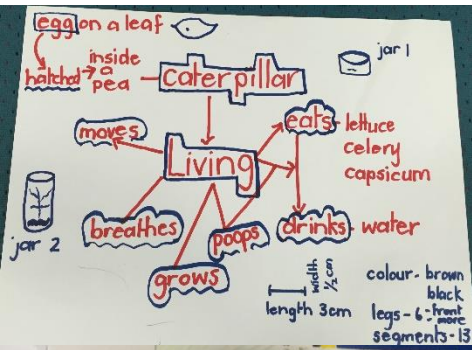 egg on a leaf
jar 1
hatched
inside
a
pea
caterpillar
moves
eats - lettuce
celery
capsicum
Living
jar 2
breathes
poops
drinks - water
grows
width
½ cm
length 3cm
colour - brown
black
legs - 6 - front
more
segments - 13